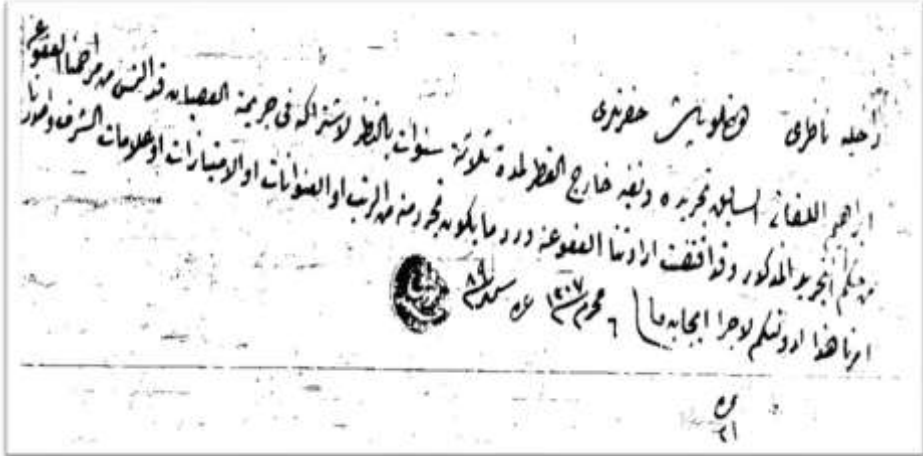 داخليه ناظرى حضرتلرى
ابراهيم اللقانى السابق تجريده ونفيه خارج القطر لمدة ثلاثة سنوات بالنظر لاشتراكه فى جريمة العصيان قد التمس من مراحمنا العفو عن
حكم التجريد المذكور وقد اقتضت ارادتنا العفو عنه ورد ما يكون تجرد منه من الرتب او العنوانات او الامتيازات او علامات الشرف واصدرنا
امرنا هذا لدولتكم لاجرا ايجابه ٦ محرم ١٣٠٧ سنه ٨٩
نمره
٢١